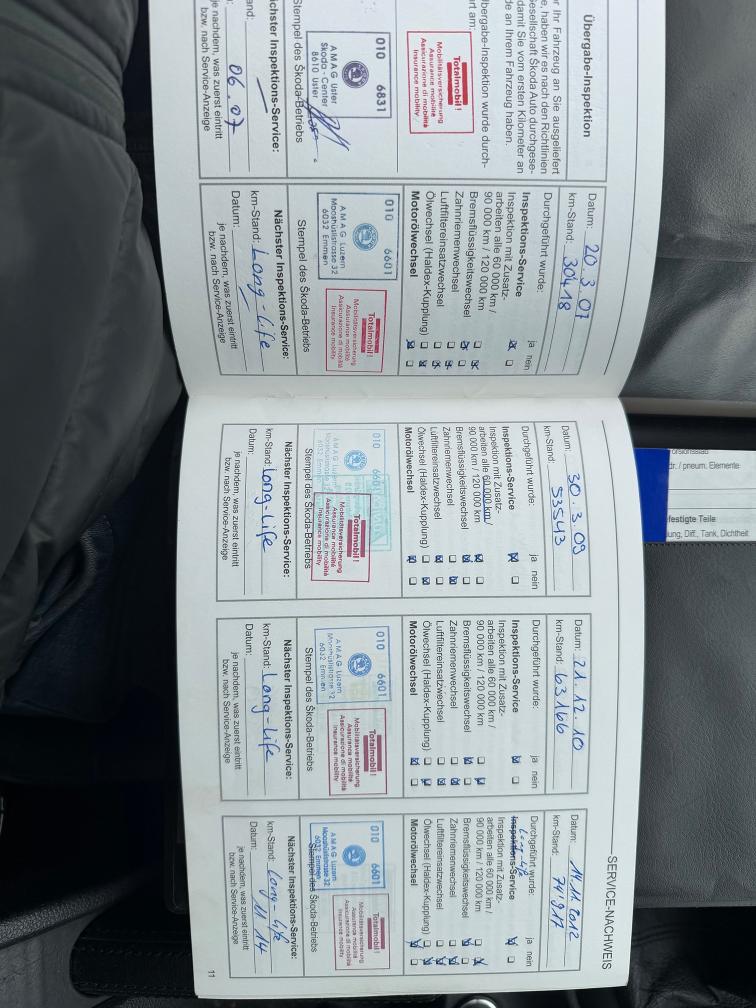 Übergabe-Inspektion
r Ihr Fahrzeug an Sie ausgeliefert
e, haben wir es nach den Richtlinien
esellschaft Škoda Auto durchgese-
damit Sie vom ersten Kilometer an
de an Ihrem Fahrzeug haben.
Totalmobil!
Mobilitätsversicherung
Assurance mobilité
Assicurazione di mobilità
Insurance mobility
bergabe-Inspektion wurde durch-
rt am:
010 6831
AMAG Uster
Škoda-Center
8610 Uster
Stempel des Škoda-Betriebs
ächster Inspektions-Service:
and:
06.07
je nachdem, was zuerst eintritt
bzw. nach Service-Anzeige
Datum: 20.3.07
km-Stand: 30418
Durchgeführt wurde: ja nein
Inspektions-Service
Inspektion mit Zusatz-
arbeiten alle 60 000 km /
90 000 km / 120 000 km
Bremsflüssigkeitswechsel
Zahnriemenwechsel
Luftfiltereinsatzwechsel
Ölwechsel (Haldex-Kupplung)
Motorölwechsel
010 6601
AMAG Luzern
Mooshüslistrasse 32
6032 Emmen
Totalmobil!
Mobilitätsversicherung
Assurance mobilité
Assicurazione di mobilità
Insurance mobility
Stempel des Škoda-Betriebs
Nächster Inspektions-Service:
km-Stand: Long-life
Datum:
je nachdem, was zuerst eintritt
bzw. nach Service-Anzeige
Datum: 30.3.09
km-Stand: 53543
Durchgeführt wurde: ja nein
Inspektions-Service
Inspektion mit Zusatz-
arbeiten alle 60 000 km /
90 000 km / 120 000 km
Bremsflüssigkeitswechsel
Zahnriemenwechsel
Luftfiltereinsatzwechsel
Ölwechsel (Haldex-Kupplung)
Motorölwechsel
010
AMAG
Totalmobil!
Mobilitätsversicherung
Assurance mobilité
Assicurazione di mobilità
Insurance mobility
Stempel des Škoda-Betriebs
Nächster Inspektions-Service:
km-Stand: Long-life
Datum:
je nachdem, was zuerst eintritt
bzw. nach Service-Anzeige
Datum: 21.12.10
km-Stand: 63166
Durchgeführt wurde: ja nein
Inspektions-Service
Inspektion mit Zusatz-
arbeiten alle 60 000 km /
90 000 km / 120 000 km
Bremsflüssigkeitswechsel
Zahnriemenwechsel
Luftfiltereinsatzwechsel
Ölwechsel (Haldex-Kupplung)
Motorölwechsel
010 6601
AMAG Luzern
Mooshüslistrasse 32
6032 Emmen
Totalmobil!
Mobilitätsversicherung
Assurance mobilité
Assicurazione di mobilità
Insurance mobility
Stempel des Škoda-Betriebs
Nächster Inspektions-Service:
km-Stand: Long-life
Datum:
je nachdem, was zuerst eintritt
bzw. nach Service-Anzeige
SERVICE-NACHWEIS
Datum: 14.11.2012
km-Stand: 74'917
Durchgeführt wurde: ja nein
Long-life
Inspektions-Service
Inspektion mit Zusatz-
arbeiten alle 60 000 km /
90 000 km / 120 000 km
Bremsflüssigkeitswechsel
Zahnriemenwechsel
Luftfiltereinsatzwechsel
Ölwechsel (Haldex-Kupplung)
Motorölwechsel
010 6601
AMAG Luzern
Mooshüslistrasse 32
6032 Emmen
Totalmobil!
Mobilitätsversicherung
Assurance mobilité
Assicurazione di mobilità
Insurance mobility
Stempel des Škoda-Betriebs
Nächster Inspektions-Service:
km-Stand: Long-life
Datum: 11.14
je nachdem, was zuerst eintritt
bzw. nach Service-Anzeige
11
dr. / pneum. Elemente
festigte Teile
ung, Diff., Tank, Dichtheit